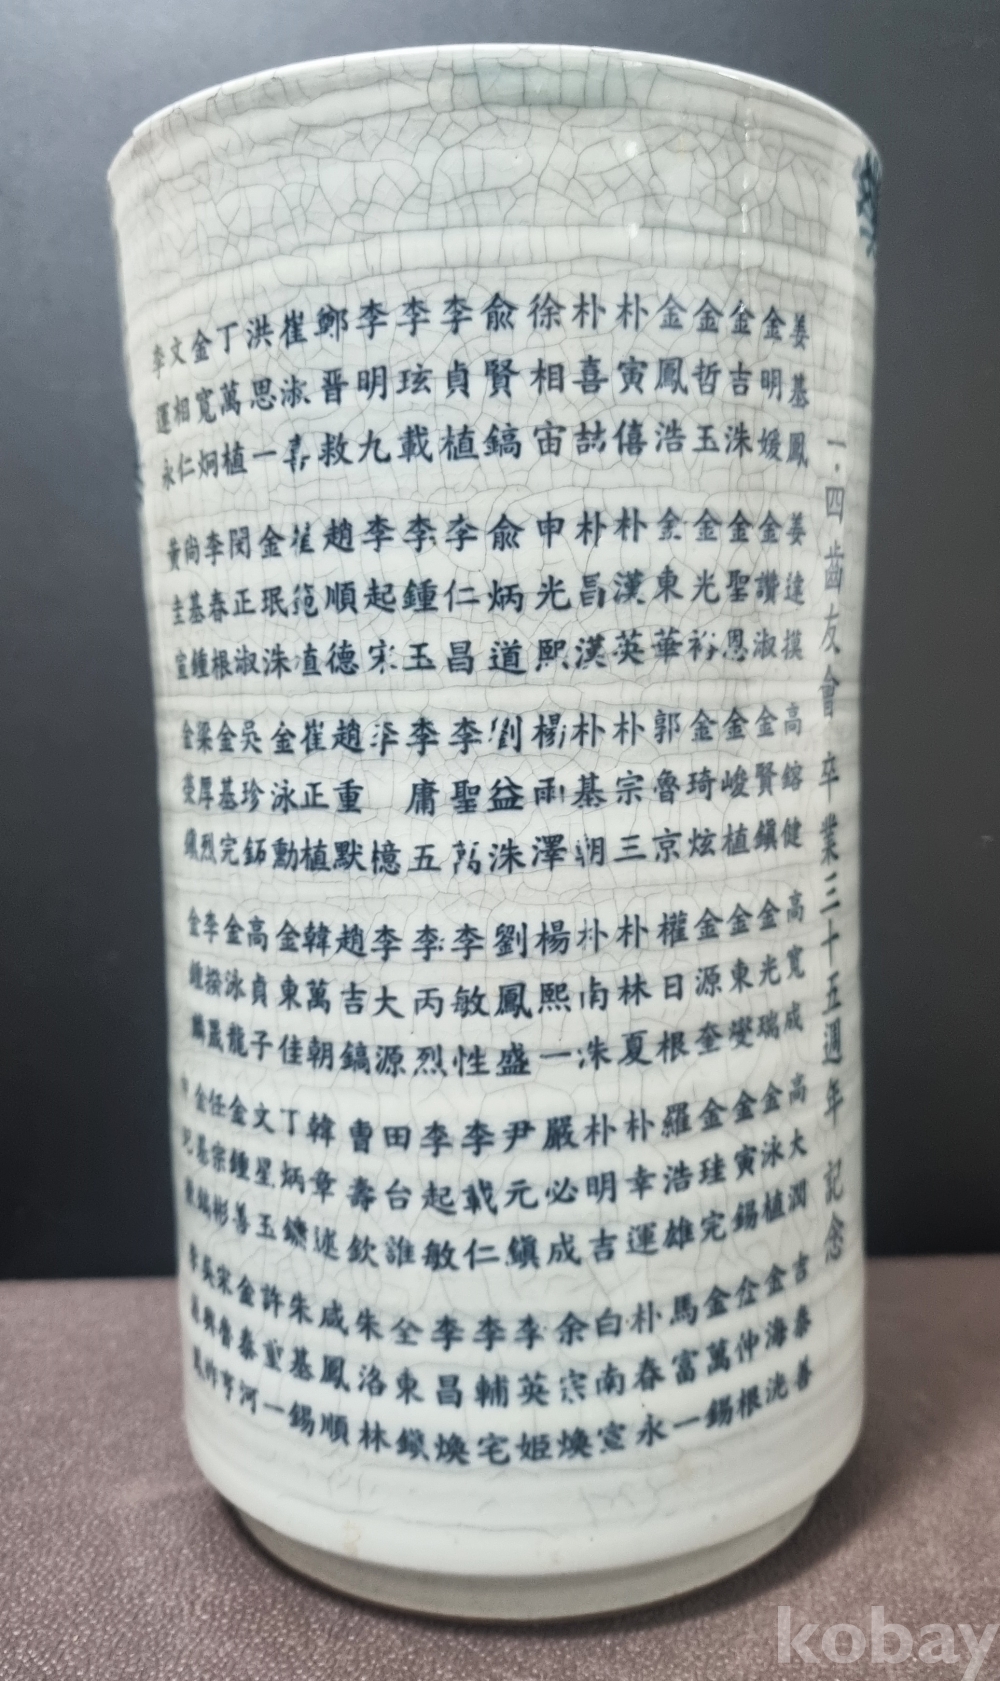 一·四齒友會卒業三十五週年記念
姜基鳳 姜達摸 高鎔健 高寬成 高大潤 吉泰善
金明媛 金讚淑 金賢鎭 金光瑞 金泳植 金海洸
金吉洙 金聖恩 金峻植 金東燮 金寅錫 金仲根
金哲玉 金光裕 金琦炫 金源奎 金珪完 金萬錫
金鳳浩 金東華 郭魯京 權日根 羅浩雄 馬富一
朴寅僖 朴漢英 朴宗三 朴林夏 朴幸運 朴春永
朴喜喆 朴昌漢 朴基朝 朴南洙 朴明吉 白南宣
徐相宙 申光熙 楊雨澤 楊熙一 嚴必成 余宗煥
兪賢鎬 兪炳道 劉益洙 劉鳳盛 尹元鎭 李英姬
李貞植 李仁昌 李聖萬 李敏性 李載仁 李輔宅
李玹載 李鍾玉 李庸五 李丙烈 李起敏 李昌煥
李明九 李起宋 李檍 李大源 田台誰 全東鎭
鄭晋救 趙順德 趙重默 趙吉鎬 曺壽欽 朱洛林
崔淑 崔範植 崔正植 韓萬朝 韓章述 咸鳳順
洪思一 金珉洙 金泳勳 金東佳 丁炳 朱基錫
丁萬植 閔正淑 吳珍鉐 高貞子 文星玉 許重一
金寬炯 李春根 金基完 金泳龍 金鍾善 金泰河
文相仁 尙基鍾 梁厚烈 李揆晟 任宗彬 宋魯亨
李運永 黃圭宣 金榮鎭 金鍾麟 金基 吳興
kobay